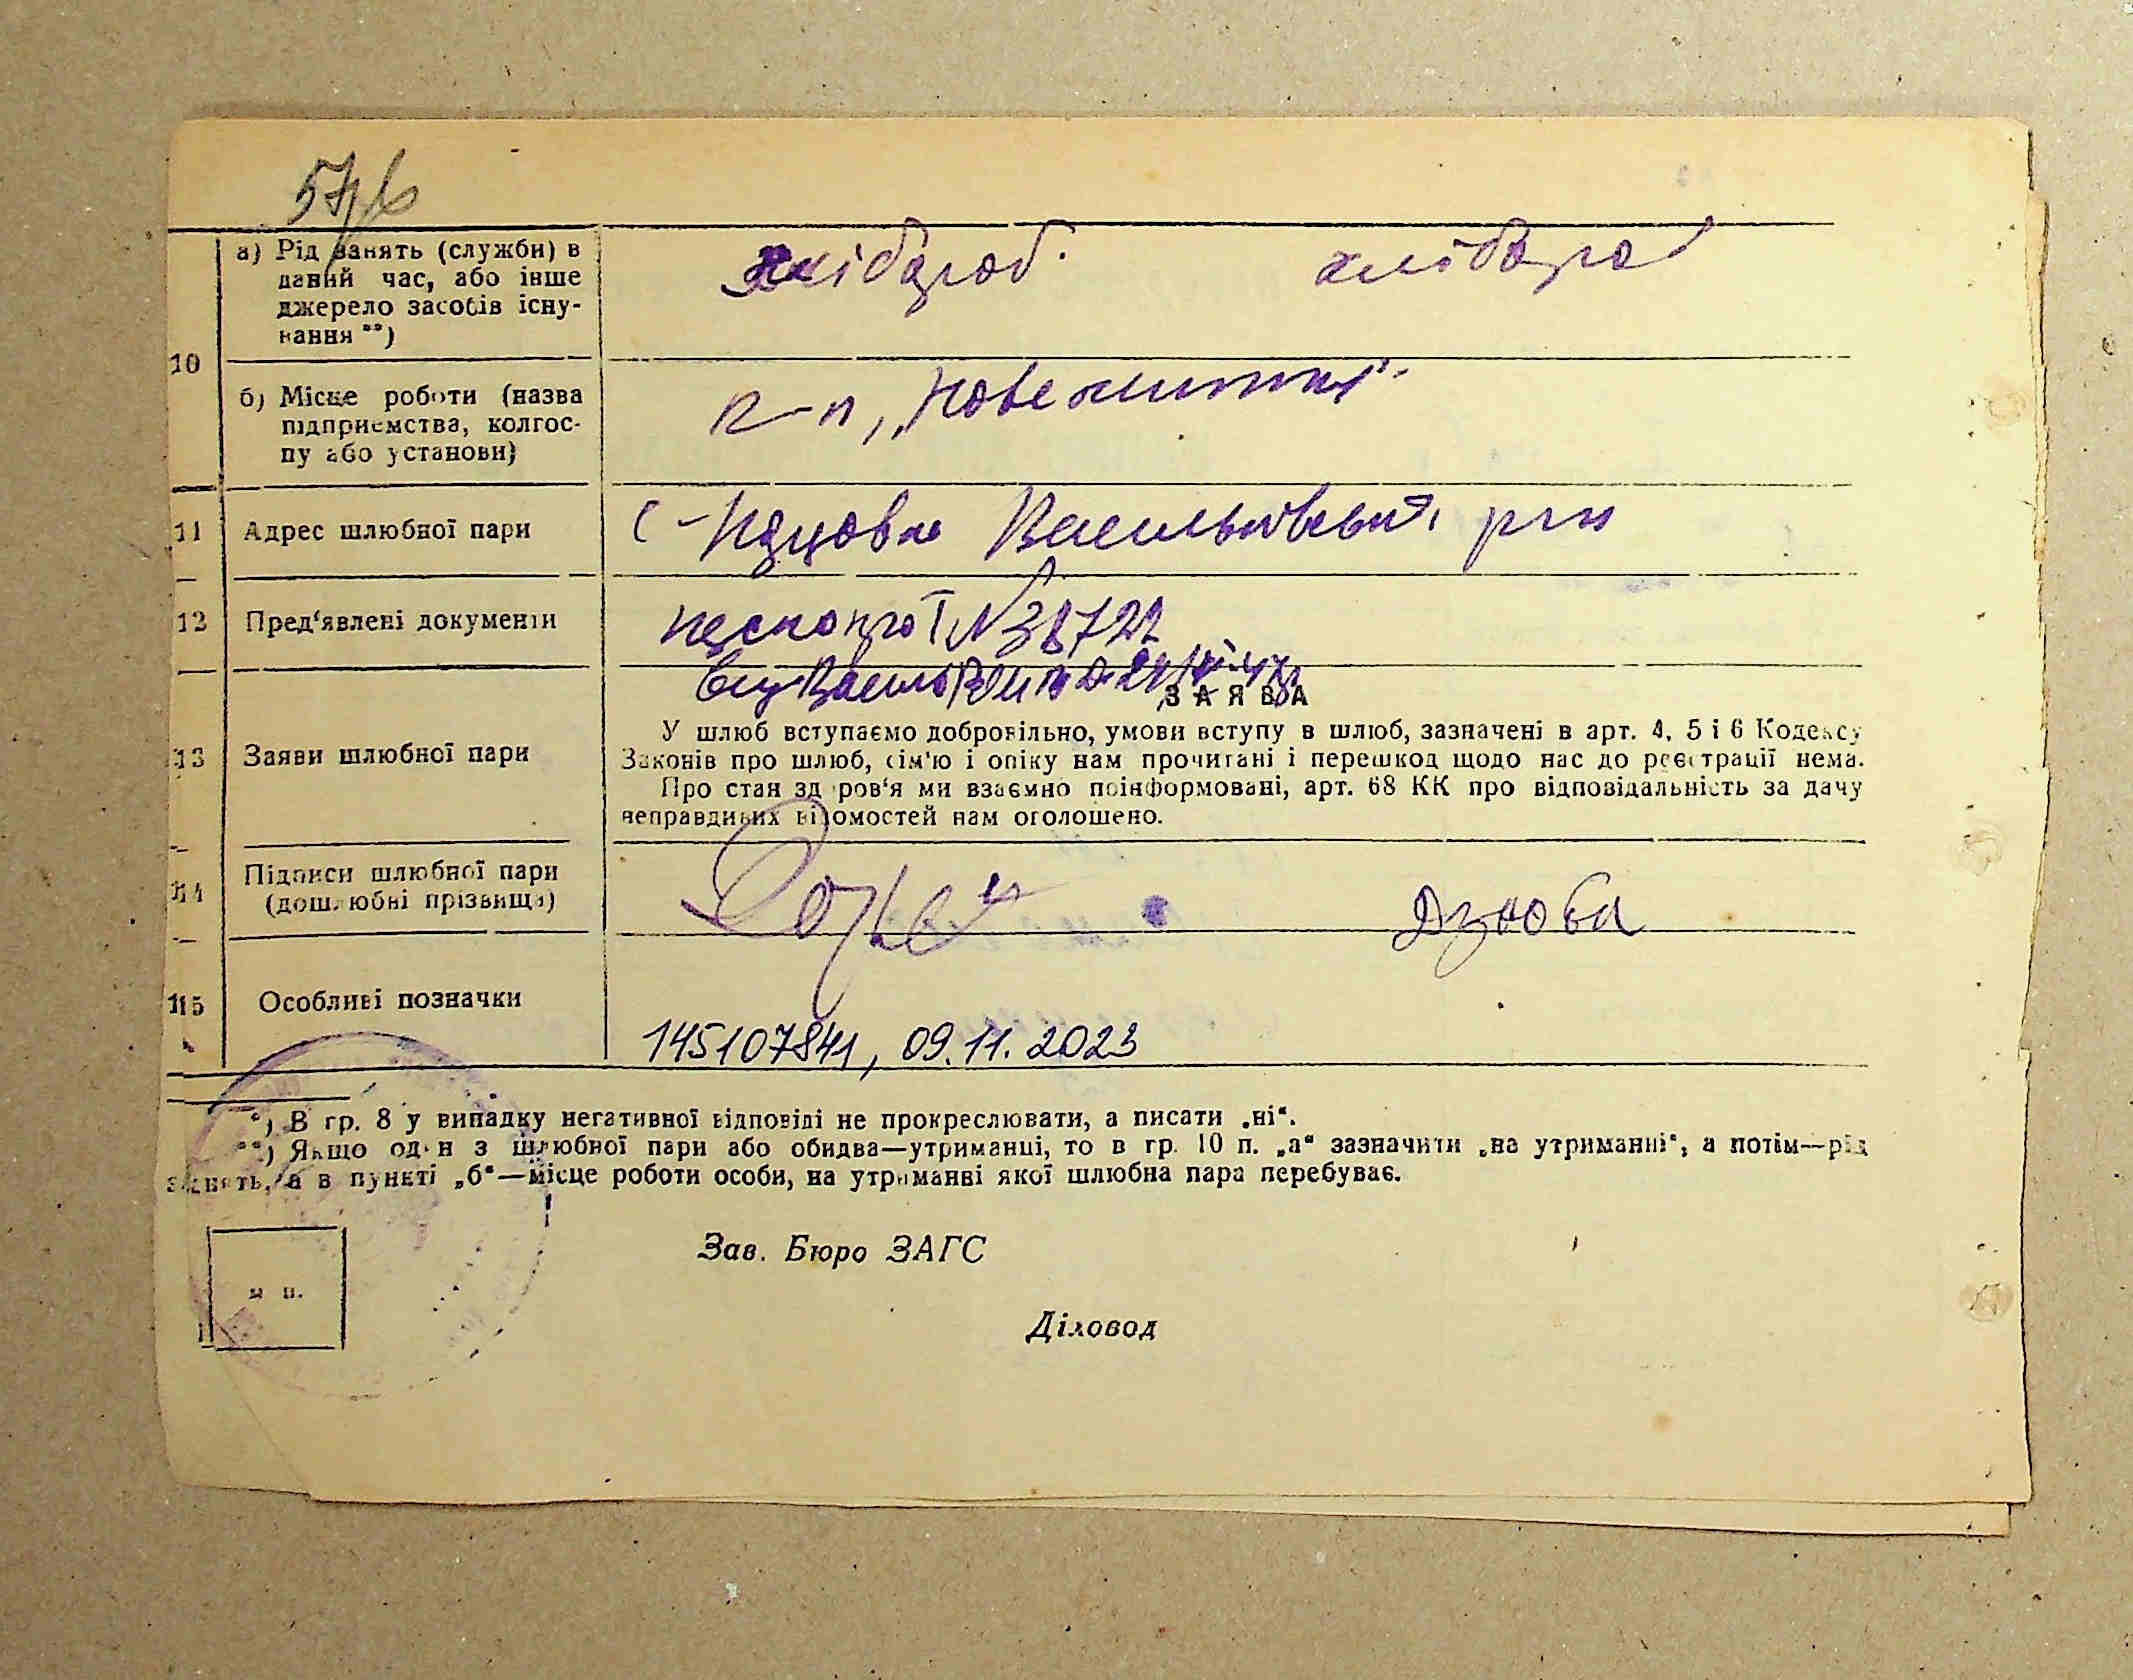 10
а) Рід занять (служби) в
даний час, або інше
джерело засобів існу-
вання **)
хлібороб.
хлібороб
б) Місце роботи (назва
підприємства, колгос-
пу або установи)
к-п „Нове життя"
11
Адрес шлюбної пари
с-
Васильківський р-н
12
Пред'явлені документи
паспорт № 38722
13
Заяви шлюбної пари
ЗАЯВА
У шлюб вступаємо добровільно, умови вступу в шлюб, зазначені в арт. 4, 5 і 6 Кодексу
Законів про шлюб, сім'ю і опіку нам прочитані і перешкод щодо нас до реєстрації нема.
Про стан здоров'я ми взаємно поінформовані, арт. 68 КК про відповідальність за дачу
неправдивих відомостей нам оголошено.
14
Підписи шлюбної пари
(дошлюбні прізвища)
Дзюба
15
Особливі позначки
145107841, 09.11.2023
*) В гр. 8 у випадку негативної відповіді не прокреслювати, а писати „ні".
**) Якщо один з шлюбної пари або обидва—утриманці, то в гр. 10 п. „а" зазначити „на утриманні", а потім—рід
занять, а в пункті „б"—місце роботи особи, на утриманні якої шлюбна пара перебуває.
Зав. Бюро ЗАГС
м п.
Діловод